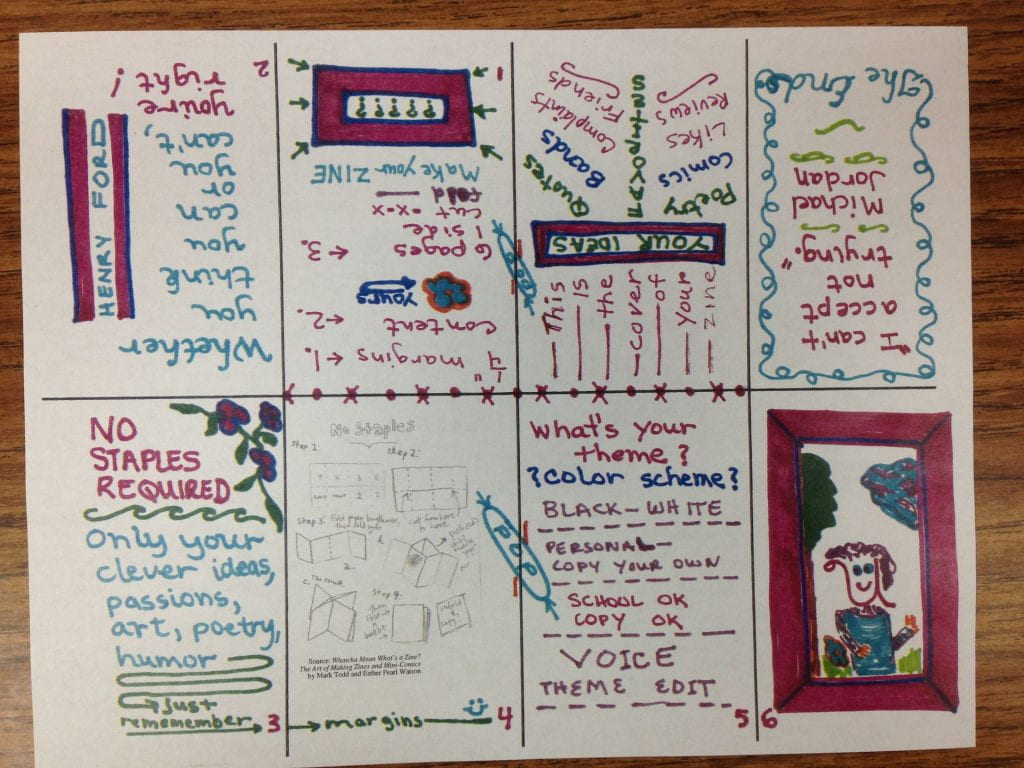 Whether
you
think
you
can
or
you
can't,
you're
right!
HENRY FORD
2
1/4" margins
1.
content
2.
yours
6 pages
3.
1 side
cut -x-x
fold
Make your ZINE
?????
1
This
is
the
cover
of
your
zine
YOUR IDEAS
Poetry
Quotes
Comics
Bands
Likes
Complaints
Reviews
Friends
"I can't
accept
not
trying."
Michael
Jordan
The End
NO
STAPLES
REQUIRED
Only your
clever ideas,
passions,
art, poetry,
humor
Just
rememember
3
No Staples
Step 1:
Step 2:
Step 3: Fold paper lengthwise,
cut from here
to here.
2.
The result
Step 4.
Then
booklet
unfold
&
copy!
Source: Whatcha Mean What's a Zine?
The Art of Making Zines and Mini-Comics
by Mark Todd and Esther Pearl Watson
margins
4
What's your
theme?
?color scheme?
BLACK-WHITE
PERSONAL-
COPY YOUR OWN
SCHOOL OK
COPY OK
VOICE
THEME EDIT
5
6